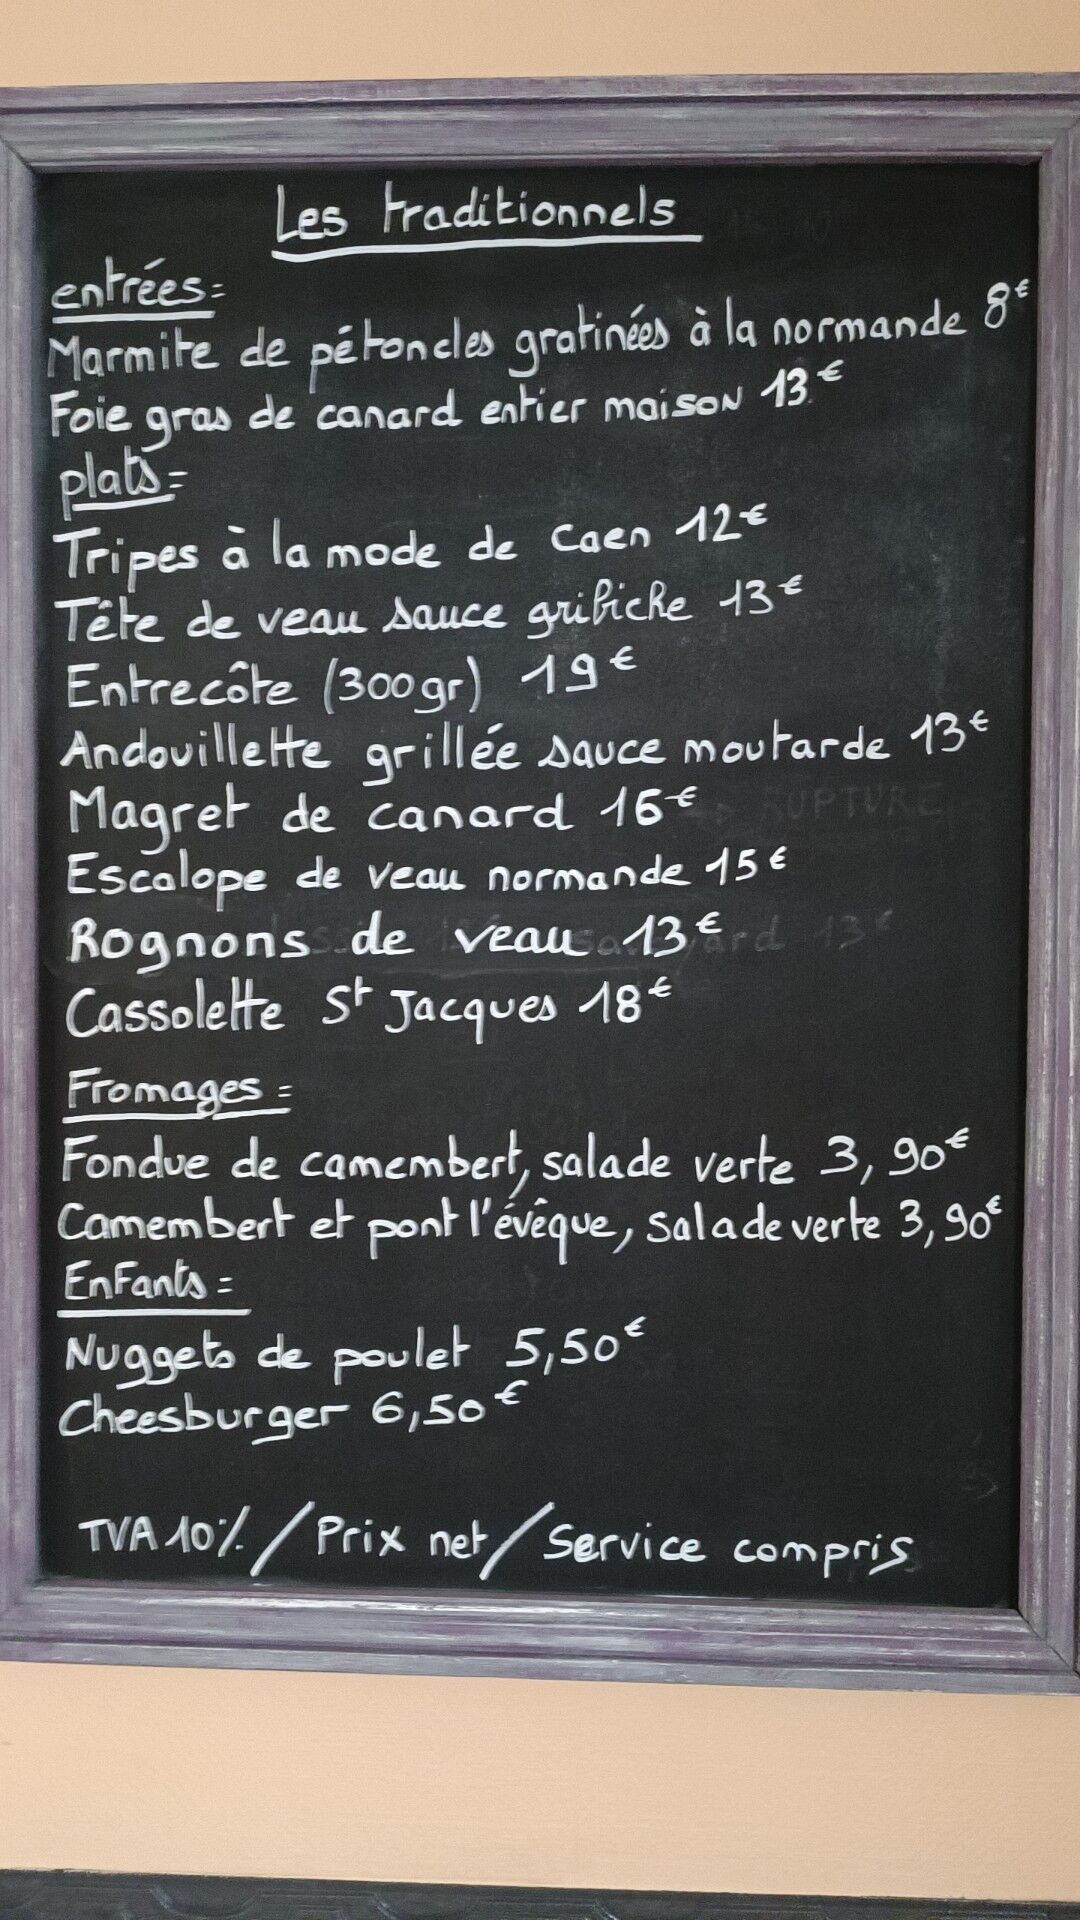 Les traditionnels
entrées:
Marmite de pétoncles gratinées à la normande 8€
Foie gras de canard entier maison 13€
plats:
Tripes à la mode de Caen 12€
Tête de veau sauce gribiche 13€
Entrecôte (300gr) 19€
Andouillette grillée sauce moutarde 13€
Magret de canard 16€
RUPTURE
Escalope de veau normande 15€
Rognons de veau 13€
Cassolette St Jacques 18€
Fromages:
Fondue de camembert, salade verte 3,90€
Camembert et pont l'évêque, salade verte 3,90€
Enfants:
Nuggets de poulet 5,50€
Cheesburger 6,50€
TVA 10% / Prix net / Service compris